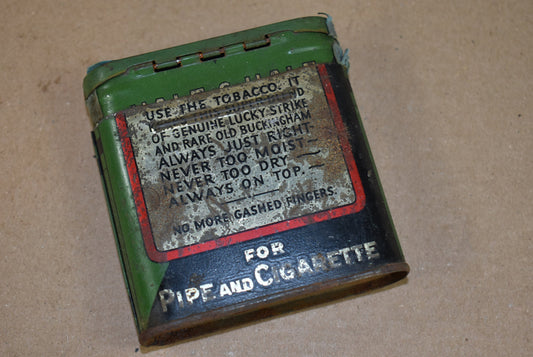 HALF & HALF
USE THE TOBACCO. IT
OF GENUINE LUCKY STRIKE
AND RARE OLD BUCKINGHAM
ALWAYS JUST RIGHT
NEVER TOO MOIST—
NEVER TOO DRY—
ALWAYS ON TOP.—
NO MORE GASHED FINGERS.
FOR
PIPE AND CIGARETTE